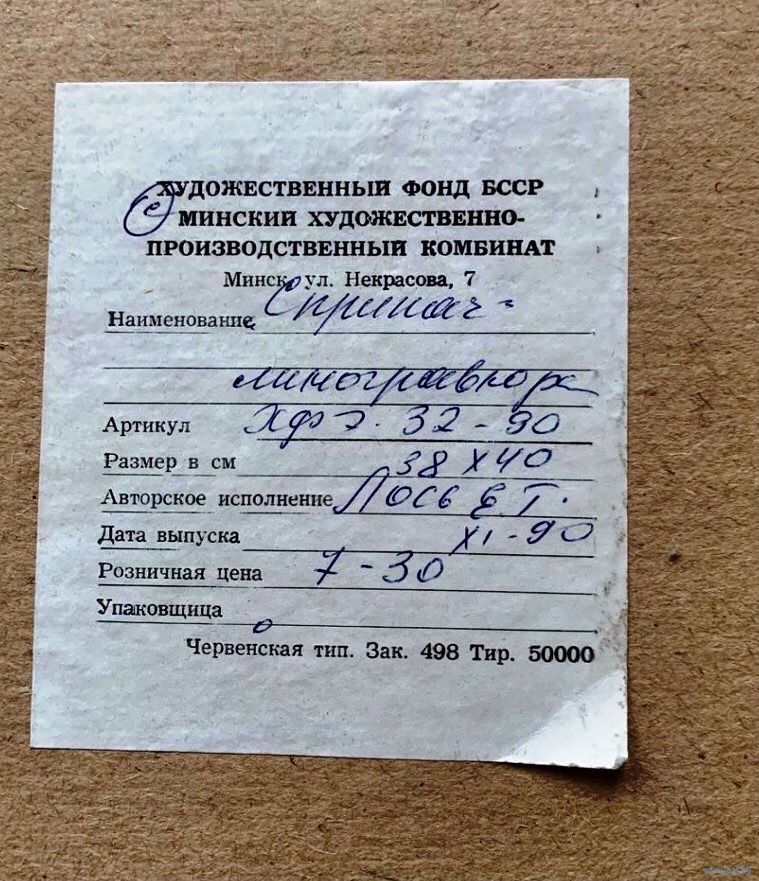 ХУДОЖЕСТВЕННЫЙ ФОНД БССР
МИНСКИЙ ХУДОЖЕСТВЕННО-
ПРОИЗВОДСТВЕННЫЙ КОМБИНАТ
Минск, ул. Некрасова, 7
Наименование
линогравюра
Артикул ХФЭ. 32-90
Размер в см 38 х 40
Авторское исполнение Лось Е. Г.
Дата выпуска XI-90
Розничная цена 7-30
Упаковщица
Червенская тип. Зак. 498 Тир. 50000